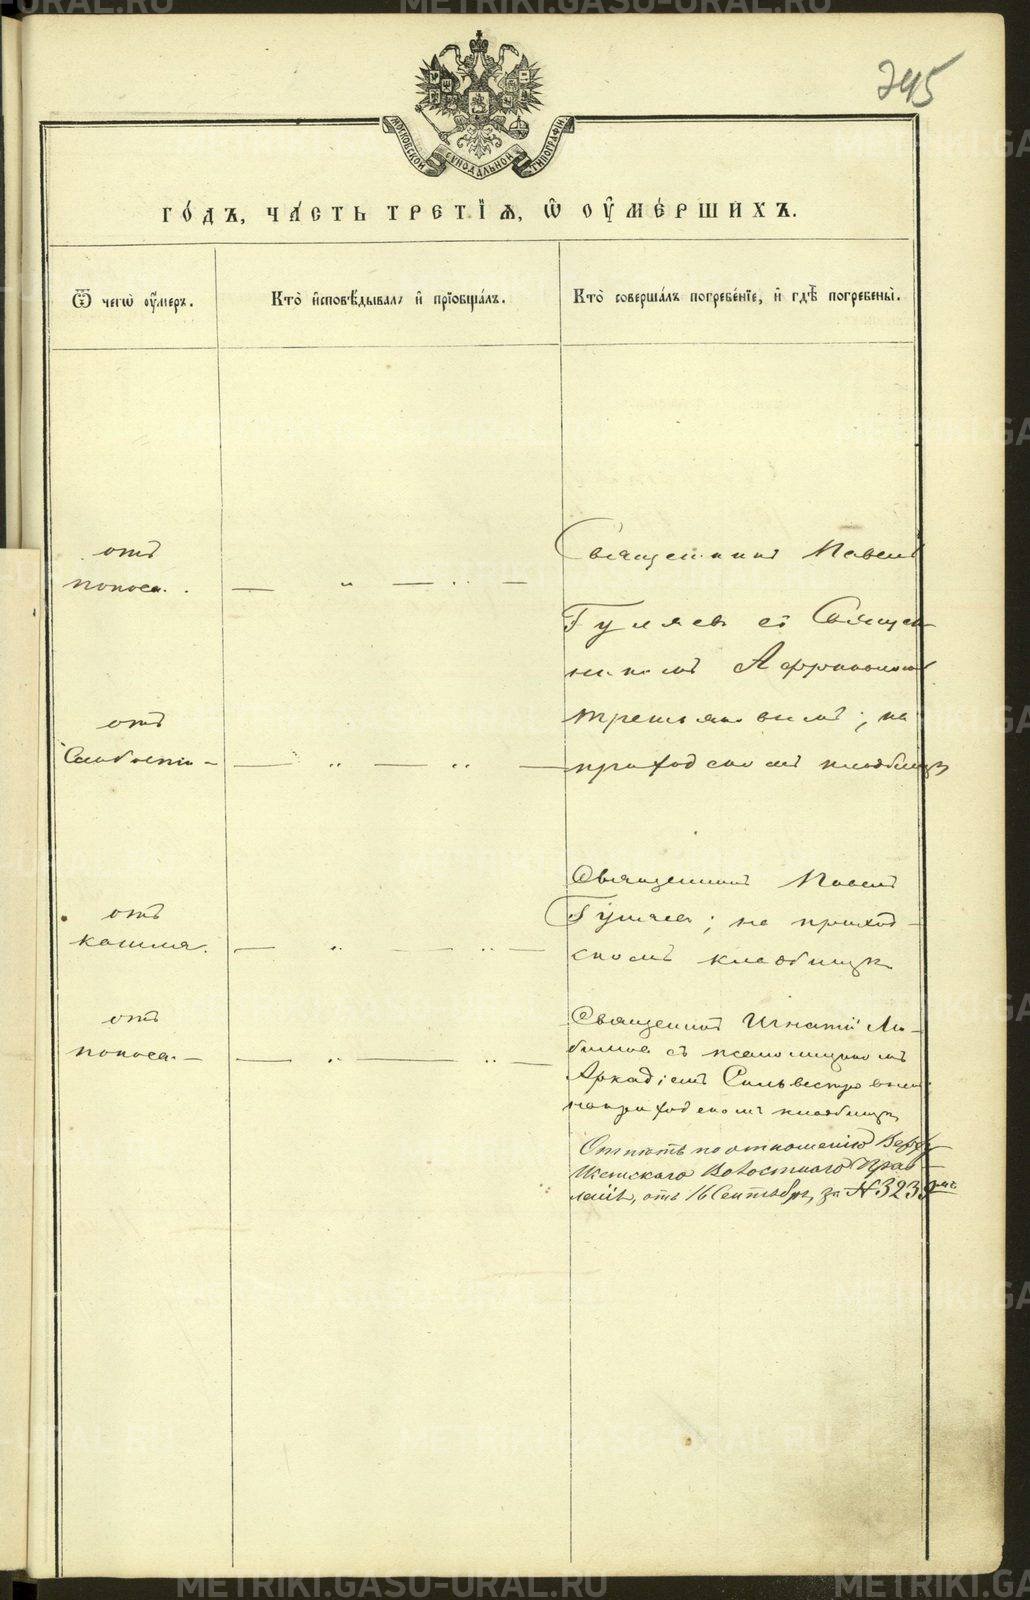 245
МОСКОВСКОЙ СѴНОДАЛЬНОЙ ТИПОГРАФІИ
ГО́ДЪ, ЧА́СТЬ ТРЕ́ТІѦ, Ѡ҆ ОУ҆МЕ́РШИХЪ.
Ѿ чегѡ̀ оу҆́меръ.
Кто̀ и҆сповѣ́дывалъ и҆ прїобща́лъ.
Кто̀ соверша́лъ погребе́нїе, и҆ гдѣ̀ погребены̀.
отъ
поноса.
Священникъ Павелъ
Гуляевъ съ Священ
никомъ Африканомъ
отъ
Слабости
Третьяковымъ; на
приходскомъ кладбищѣ
отъ
кашля.
Священникъ Павелъ
Гуляевъ; на приход
скомъ кладбищѣ
отъ
поноса.
Священникъ Игнатій Лю-
бимовъ съ псаломщикомъ
Аркадіемъ Сильвестровымъ
на приходскомъ кладбищѣ
Отпѣтъ по отношенію Верхъ
волостного Прав-
ленія, отъ 16 Сентября, за №
METRIKI.GASO-URAL.RU